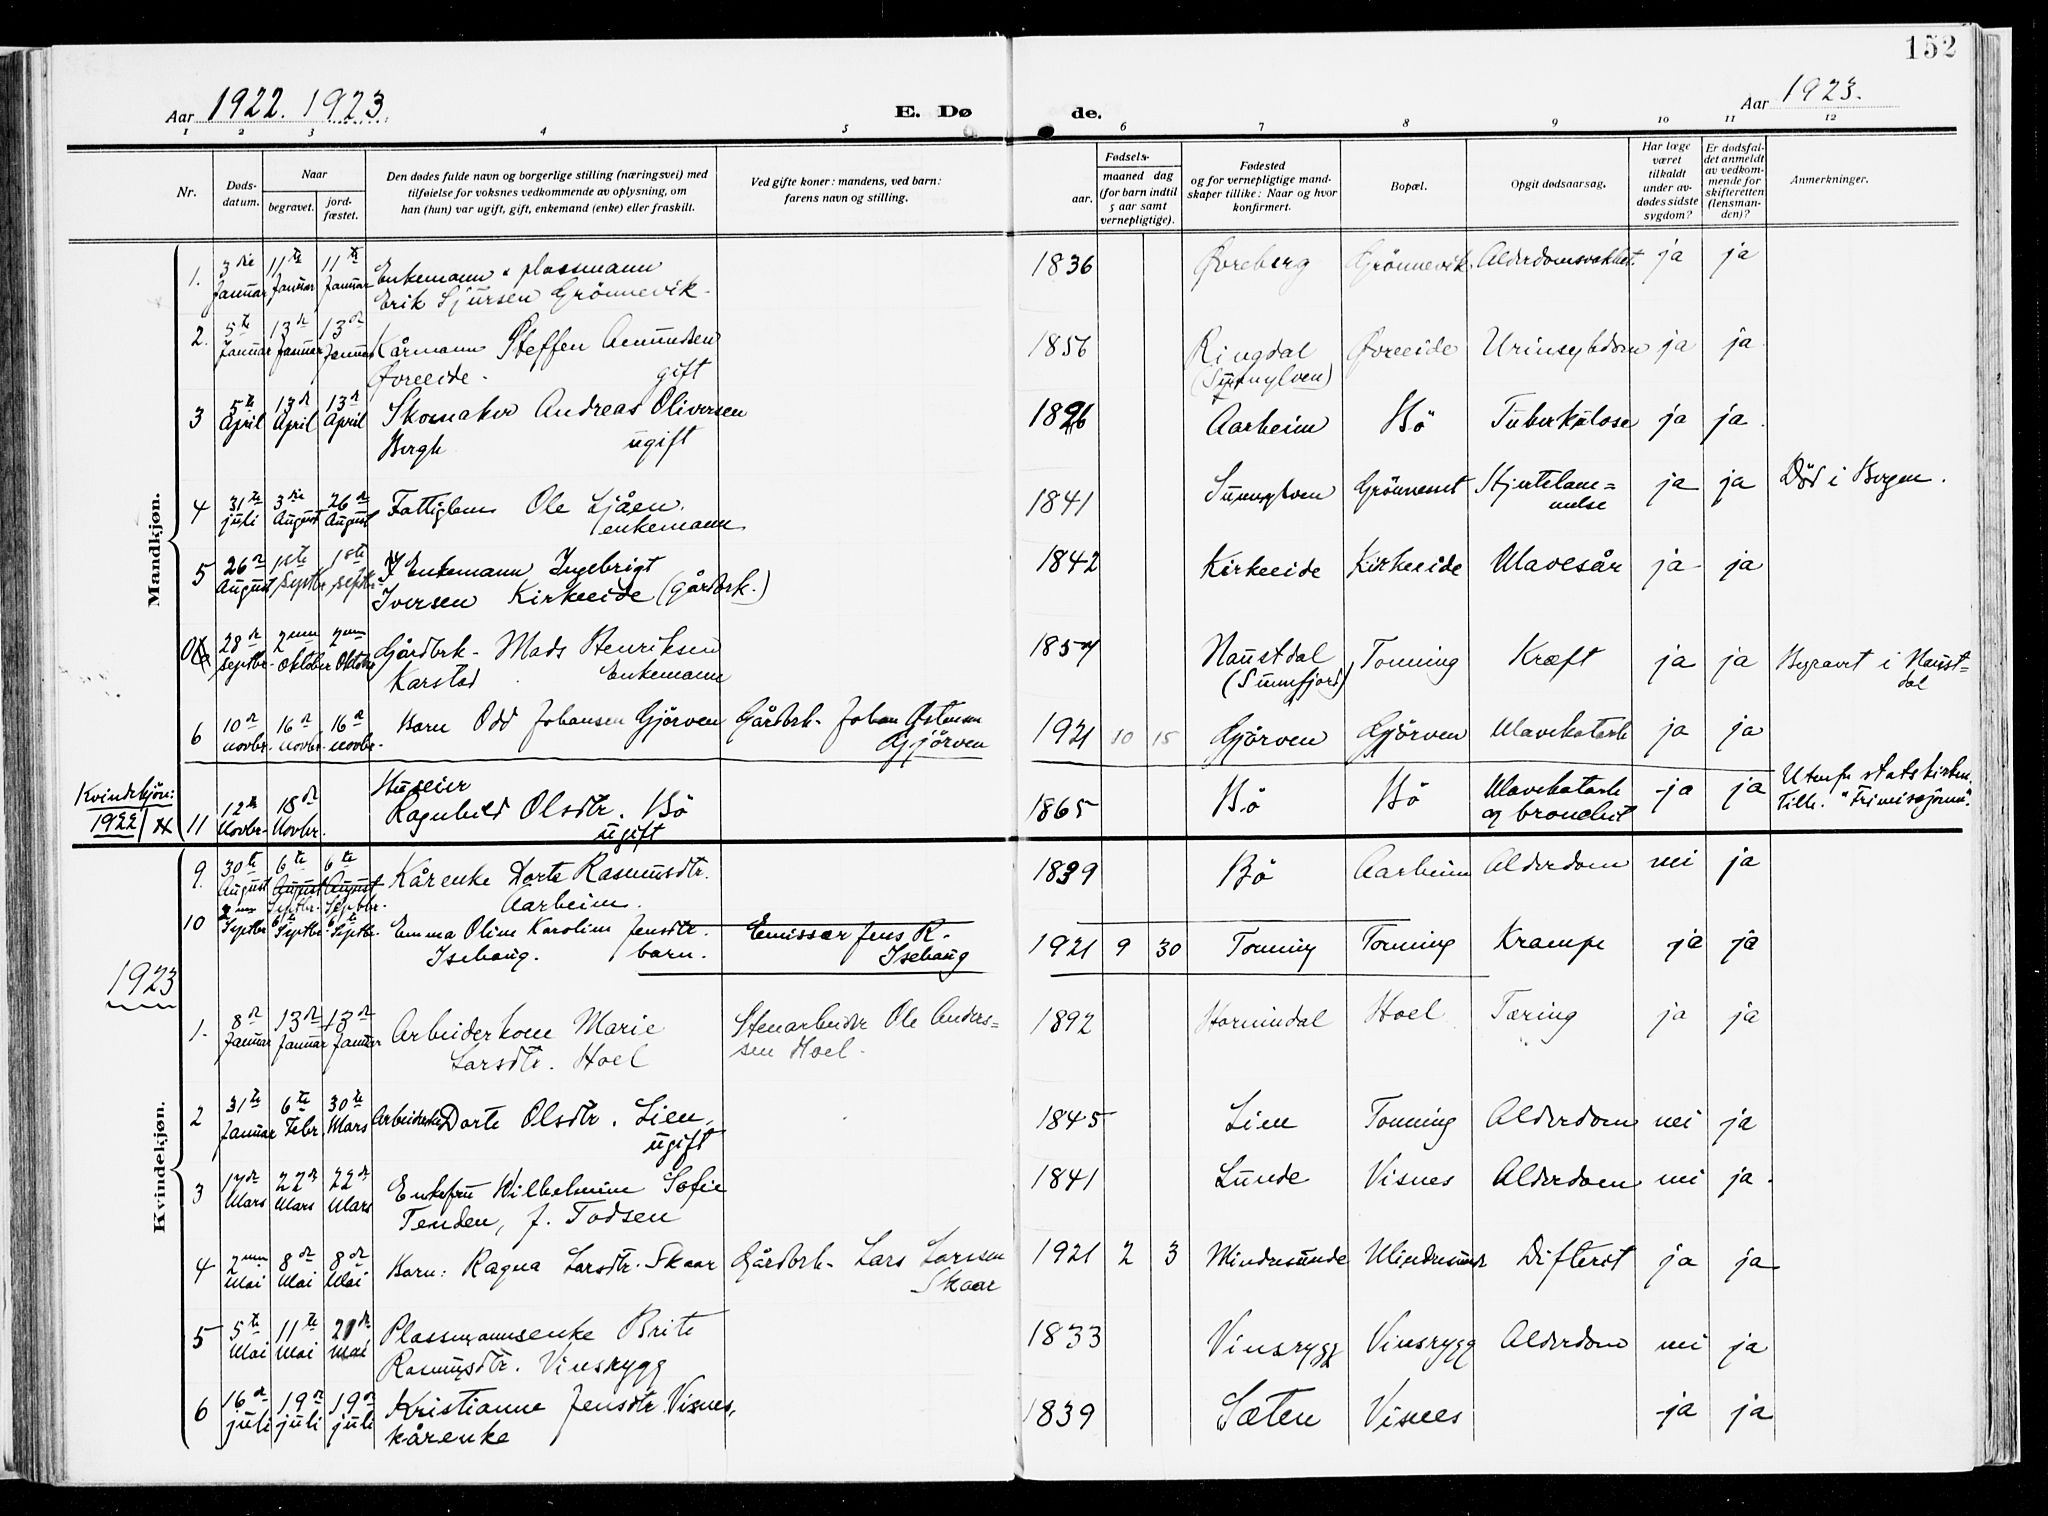 152
Aar 1922. 1923.
E. Dø de.
Aar 1923.
1 2 3 4 5 6 7 8 9 10 11 12
Nr.
Dødsdatum.
Naar
begravet.
jordfæstet.
Den dødes fulde navn og borgerlige stilling (næringsvei) med
tilføielse for voksnes vedkommende av oplysning, om
han (hun) var ugift, gift, enkemand (enke) eller fraskilt.
Ved gifte koner: mandens, ved barn:
farens navn og stilling.
Fødsels-
aar.
maaned dag
(for barn indtil
5 aar samt
vernepligtige).
Fødested
og for vernepligtige mand-
skaper tillike: Naar og hvor
konfirmert.
Bopæl.
Opgit dødsaarsag.
Har læge
været
tilkaldt
under av-
dødes sidste
sygdom?
Er dødsfal-
det anmeldt
av vedkom-
mende for
skifteretten
(lensman-
den)?
Anmerkninger.
Mandkjøn.
1. 3die Januar 11te Januar 11te Januar Enkemann & plassmann
Erik Sjursen Grönnevik. 1836 Øvreberg Grönnevik Alderdomsvakhet. ja ja
2. 5te Januar 13de Januar 13de Januar Kårmann Steffen Amundsen
Øvreeide. gift 1856 Ringdal (Sunnylven) Øvreeide Urinsykdom ja ja
3 5te April 13de April 13de April Skomaker Andreas Oliversen
Bergh ugift 1896 Aarheim Bö Tuberkulose ja ja.
4 31te juli 3die August 26de August Fattiglem Ole Sjåen.
enkemann 1841 Sunnylven Grönneset Hjertelam=
melse ja ja Död i Bergen.
5 26de August 1ste Septbr 1ste Septbr. Enkemann Ingebrigt
Iversen Kirkeeide (gårdbrk.) 1842 Kirkeeide Kirkeeide Mavesår ja ja
28de septbr. 2nen Oktober 2nen Oktober Gårdbrk. Mads Henriksen
Karstad Enkemann 1857 Naustdal
(Sunnfjord) Tonning Kræft ja ja Begravet i Naust=
dal
6 10de novbr. 16de Novbr. 16de novbr. Barn Odd Johansen Gjörven Gårdbrk. Johan Østensen
Gjörven 1921 10 15 Gjörven Gjörven Mavekatarh ja ja
Kvindekjön:
1922
11 12te Novbr. 18de Novbr. Huseier
Ragnhild Olsdtr. Bö
ugift 1865 Bö Bö Mavekatarh
og bronchit ja ja Utenfor statskirken.
Kvindekjøn.
9. 30te August 6te August Septbr. 6te August Septbr. Kårenke Dorte Rasmusdtr.
Aarheim. 1839 Bö Aarheim Alderdom nei ja
10 2nen Septbr 6te Septbr 6te Septbr. Emma Oline Karoline Jensdtr.
Isehaug. barn. Emissær Jens R.
Isehaug 1921 9 30 Tonning Tonning Krampe ja ja
1923
1. 8de Januar 13de Januar 13de Januar Arbeiderkone Marie
Larsdtr. Hoel Stenarbeider Ole Anders=
sen Hoel. 1892 Hornindal Hoel Tæring ja ja
2 31te Januar 6te Febr. 30te Mars Arbeiderske Dorte Olsdtr. Lien,
ugift 1845 Lien Tonning Alderdom nei ja
3 17de Mars 22de Mars 22de Mars Enkefru Wilhelmine Sofie
Tenden, f. Todsen 1841 Lunde Visnes Alderdom nei ja.
4 2nen Mai 8de Mai 8de Mai Barn: Ragna Larsdtr. Skaar Gårdbrk. Lars Larssen
Skaar 1921 2 3 Mindresunde Mindresunde Difterit ja ja
5 5te Mai 11te Mai 21de Mai Plassmannsenke Brite
Rasmusdtr. Vinsrygg 1833 Vinsrygg Vinsrygg Alderdom nei ja
6 16de juli 19de juli 19de juli Kristianne Jensdtr. Visnes,
kårenke 1839 Sæten Visnes ja ja